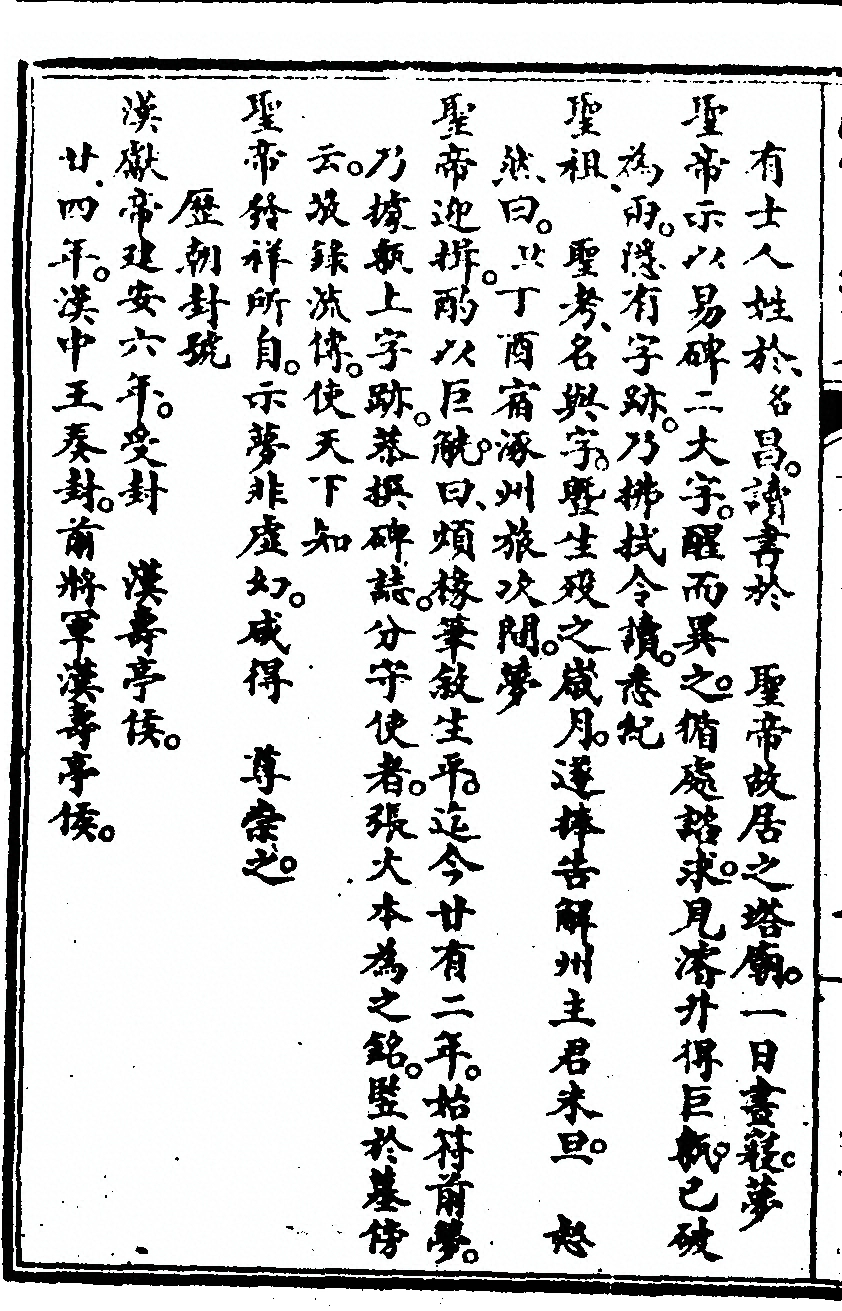 有士人姓於、名昌。讀書於　聖帝故居之塔廟。一日晝寢。夢
聖帝示以易碑二大字。醒而異之。循處求。見濬井得巨甎。已破
為兩。隱有字跡。乃拂拭令讀。悉紀
聖祖、　聖考、名與字。曁生歿之歲月。遂捧告解州主君朱旦。
然曰。旦丁酉宿涿州旅次間。夢
聖帝迎揖。酌以巨觥。曰、煩椽筆敘生平。迄今廿有二年。始符前夢。
乃據甎上字跡。恭撰碑誌。分守使者。張大本為之銘。竪於墓傍
云。茲錄流傳。使天下知
聖帝發祥所自。示夢非虛幻。咸得　尊崇之。
歷朝封號
漢獻帝建安六年。受封　漢壽亭侯。
廿四年。漢中王奏封。前將軍漢壽亭侯。